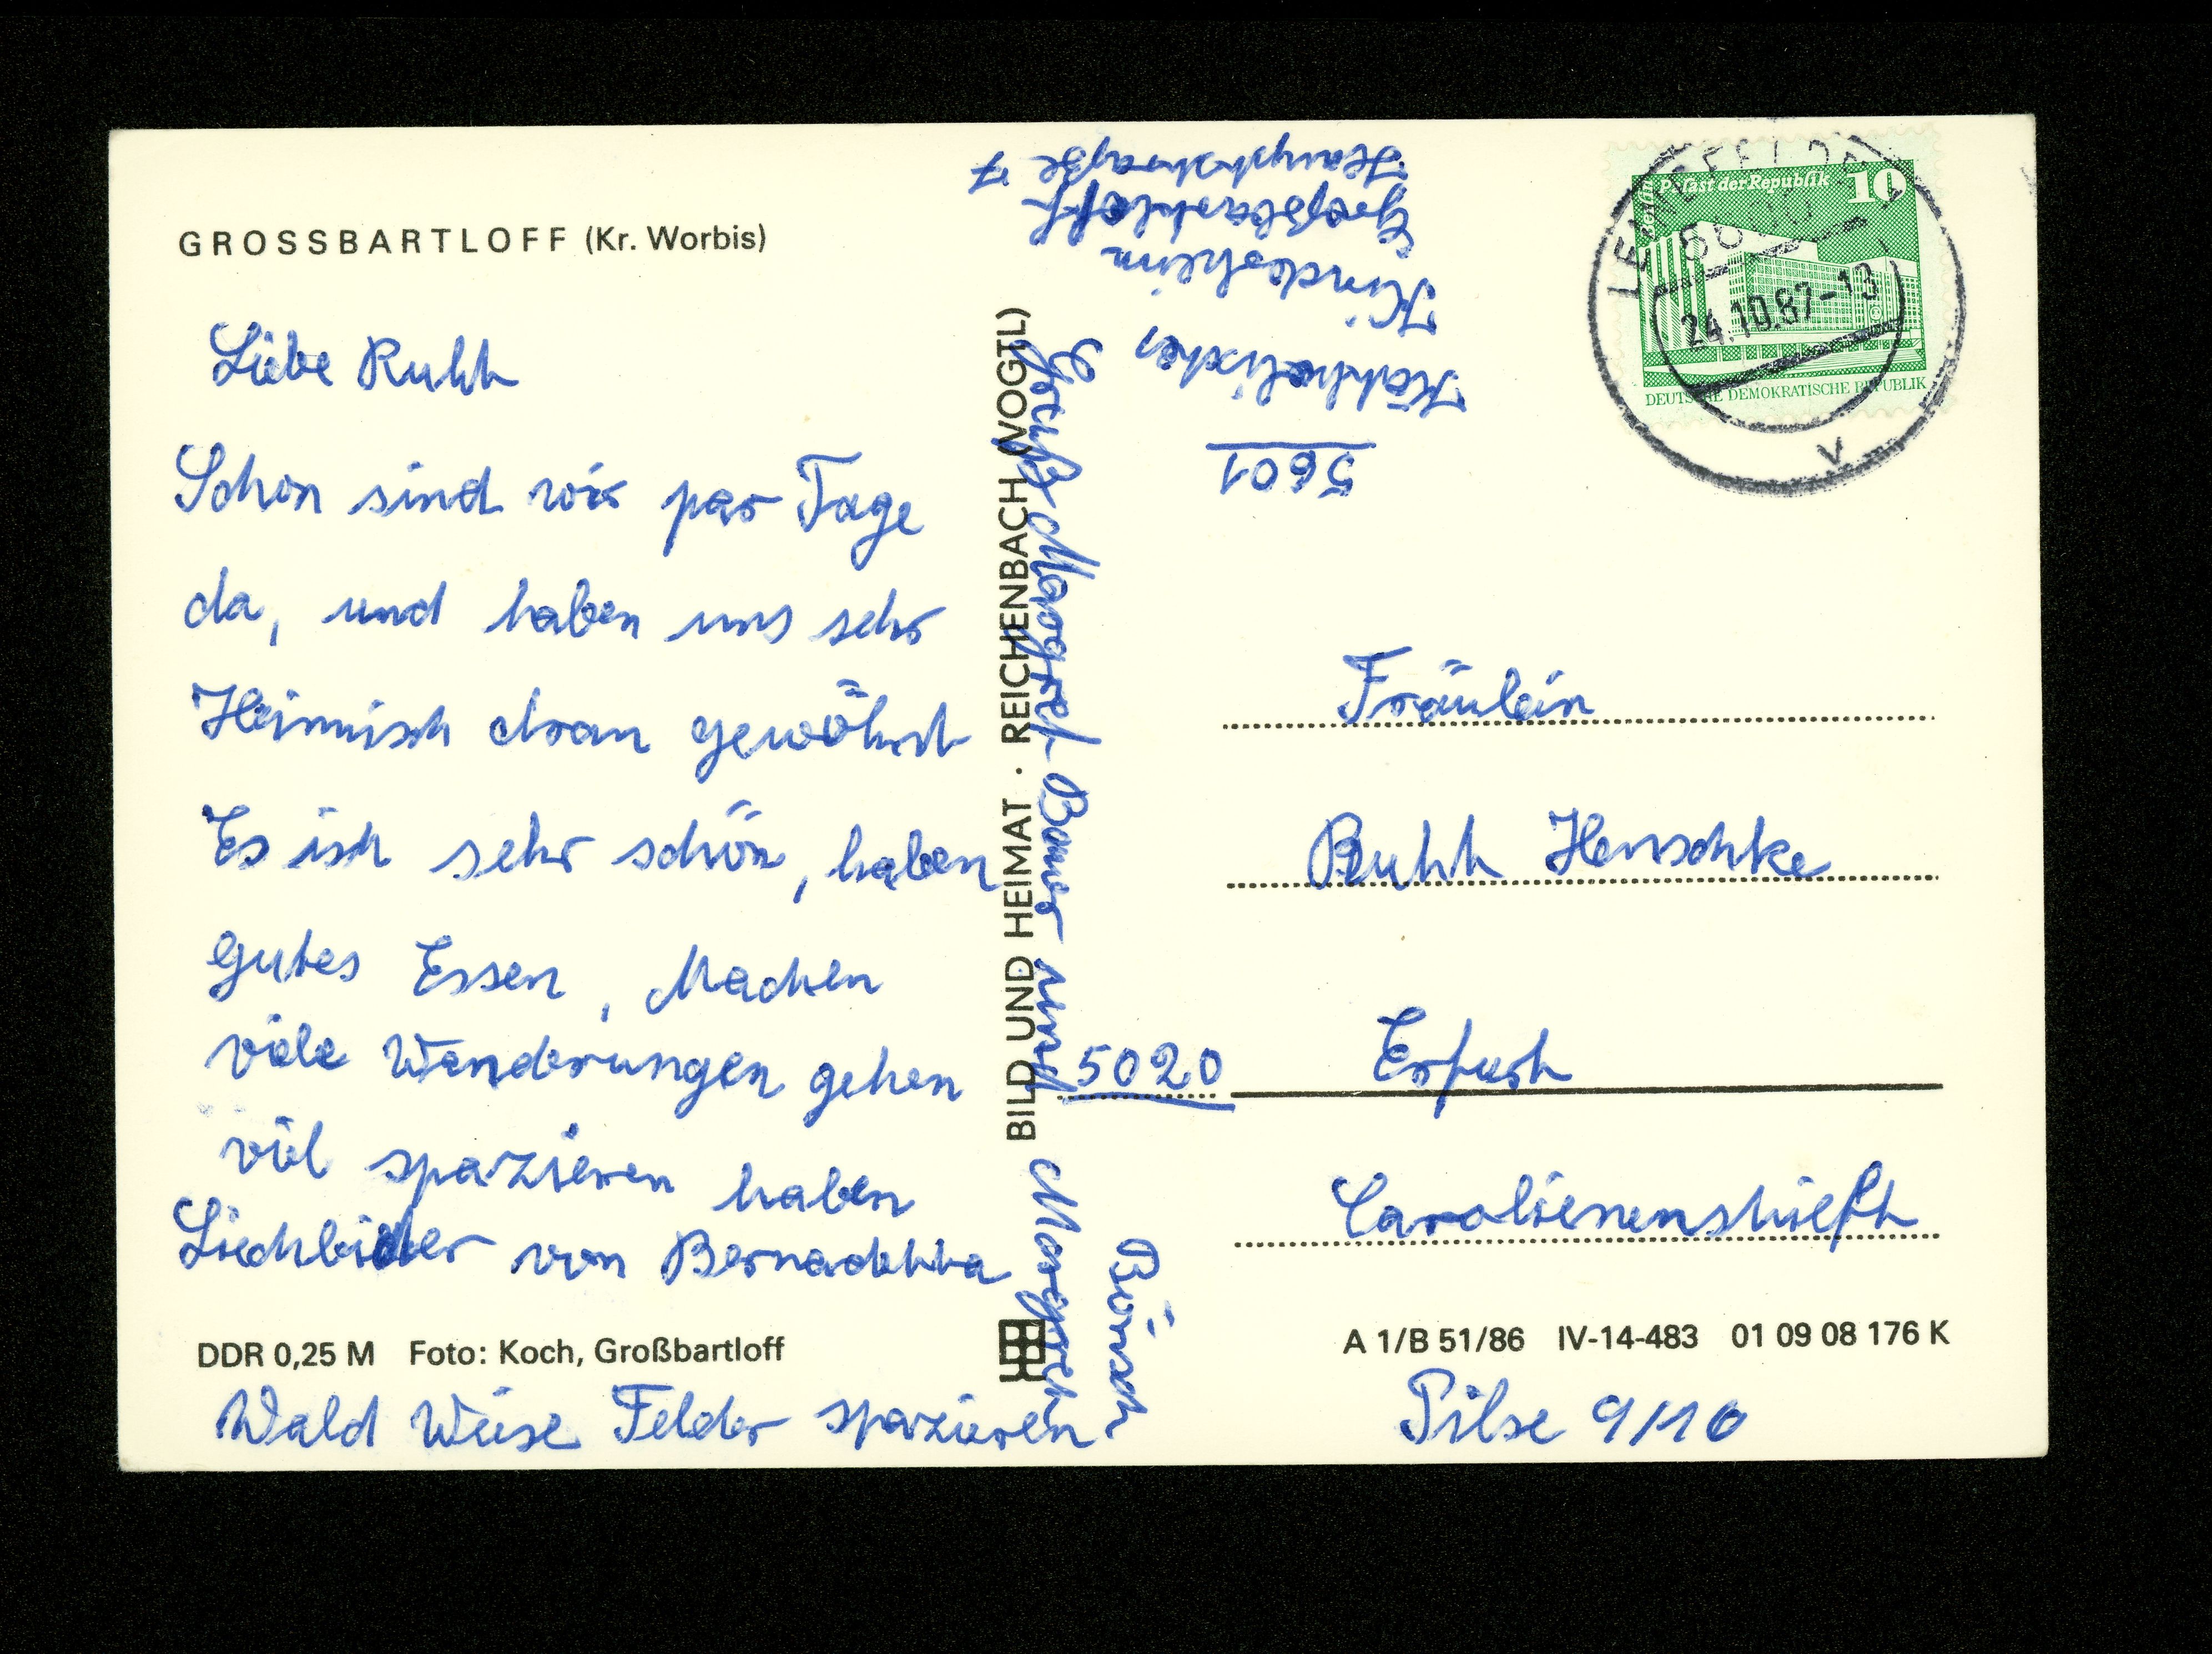 GROSSBARTLOFF (Kr. Worbis)
Liebe Ruth
Schon sind wir par Tage
da, und haben uns sehr
Heimisch dran gewöhnt
Es ist sehr schön, haben
gutes Essen, Machen
viele Wanderungen gehen
viel spazieren haben
Liechbilder von Bernadetta
DDR 0,25 M Foto: Koch, Großbartloff
Wald Wiese Felder spazieren.
BILD UND HEIMAT · REICHENBACH (VOGTL)
Gruß Margret Bauer und Margret
Bünsch
5601
Katholisches
Kinderheim
Großbartloff
Hauptstraße 7
Berlin Palast der Republik 10
DEUTSCHE DEMOKRATISCHE REPUBLIK
LENGEFELD
24.10.87-13
V
Fräulein
Ruth Henschke
5020 Erfurt
Carolienenstieft
A 1/B 51/86 IV-14-483 01 09 08 176 K
Pilse 9/10